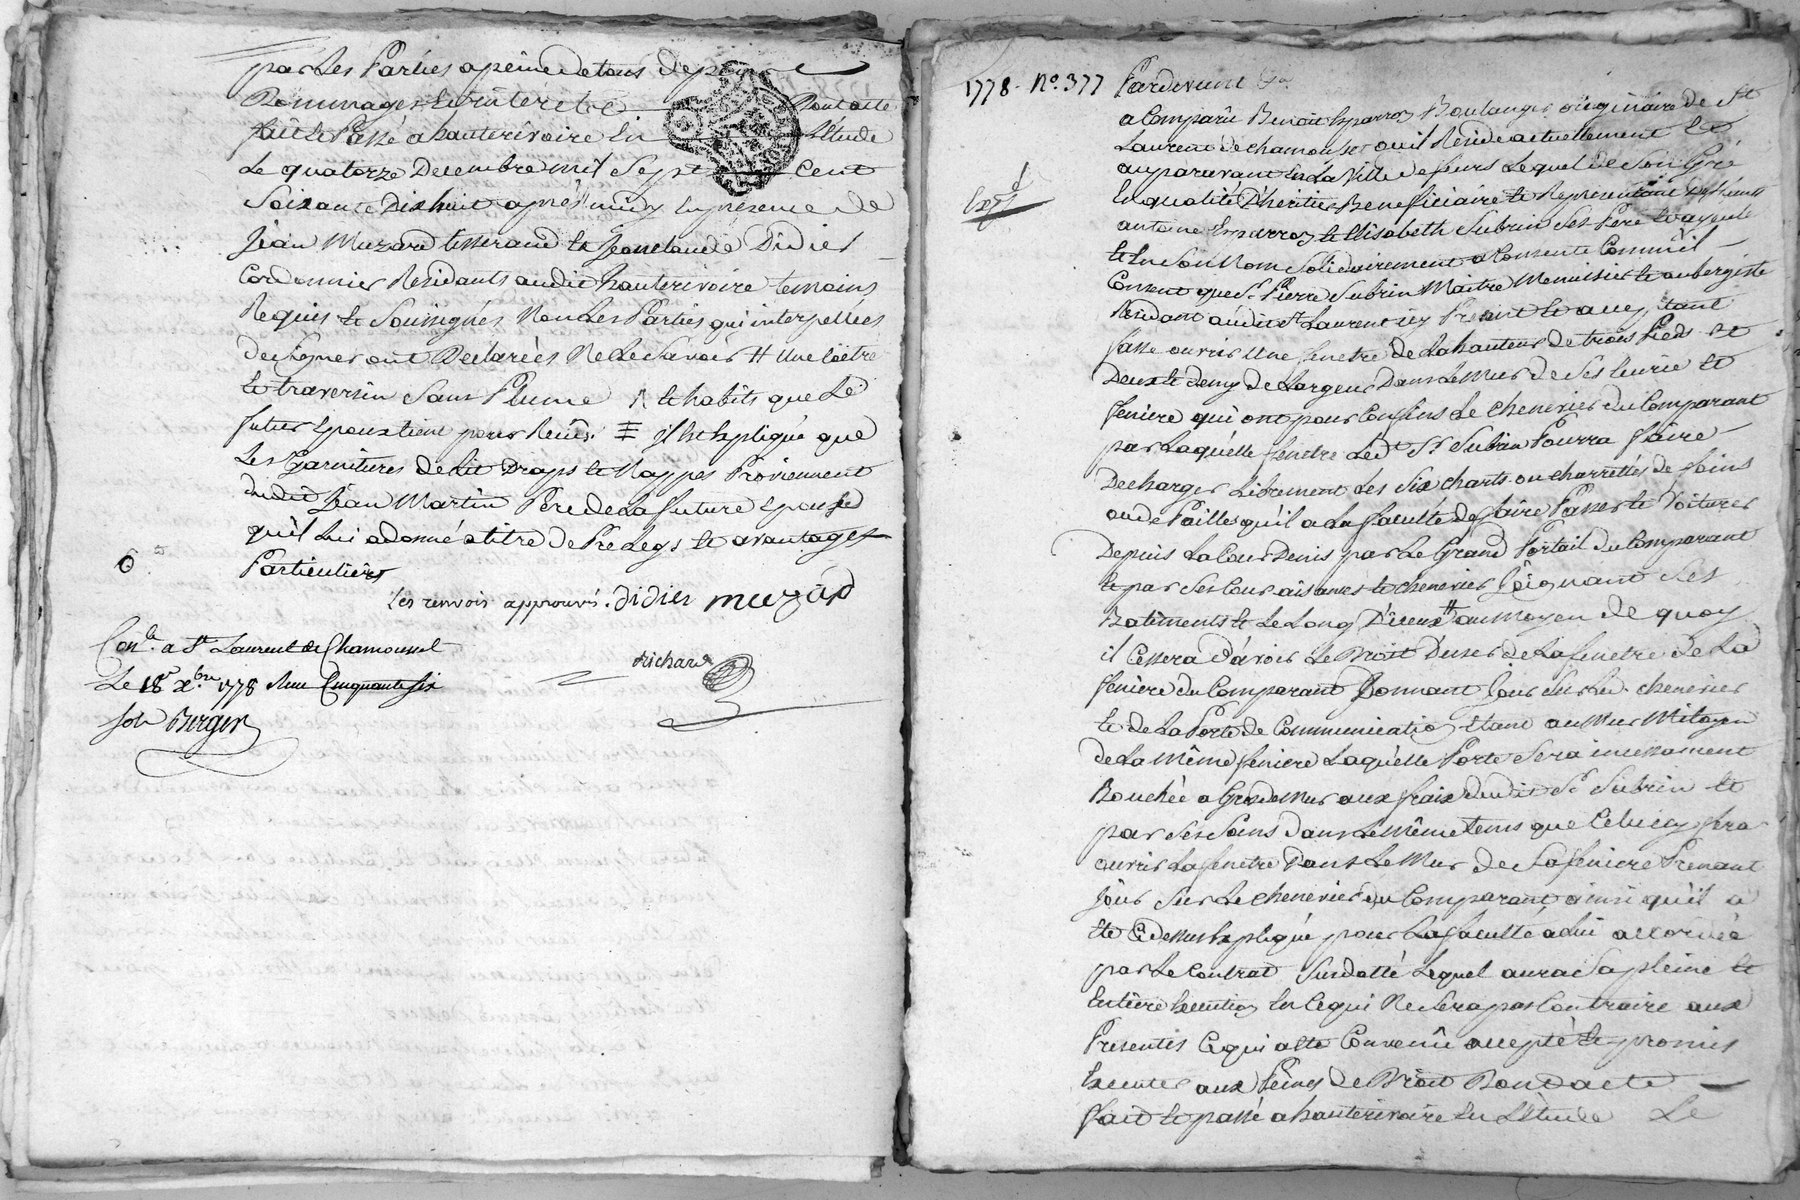 par Les Parties a peine de tous depens
Dommages et interet
Dont acte
fait et Passé a hauterivoire En L'Etude
Le quatorze Decembre mil Sept Cent
Soixante Dix huit après midy En presence de
Jean Muzard tisserand et Jean claude Didier
Cordonnier Residants audit hauterivoire temoins
Requis et Soussignés Non Les Parties qui interpellées
de Signer ont Declarées Ne Le Savoir # une
et traversin Sans Plume et habits que Le
futur Epoux tient pour Recûs. il Est Expliqué que
Les Garnitures de Lit Draps et Nappes Proviennent
dudit Jean Martin Pere de La future Epouse
qu'il Lui a donné a titre de PreLegs et avantages
Particuliers
Les renvois approuvés. Didier muzard
Richard
Con.lé a St Laurent de Chamousset
Le 18e Xbre 1778 Cinquante six
Berger
1778. No. 377 Pardevant
a Comparû Benoit Esparron Boulanger originaire de St
Laurent de chamousset ou il Reside actuellement Et
auparavant En La Ville de feurs Lequel de Son Gré
Expé
En qualité D'heritier Beneficiaire et Representant deffunts
antoine Esparron et Elisabeth Subrin Ses Pere et ayeule
et En Son Nom Solidairement a Consenti Comme il
Consent que Sr. Pierre Subrin Maitre Menuisier et aubergiste
Residant audit St Laurent icy Present et acceptant
fasse ouvrir Une fenetre de La hauteur de trois Pieds et
Deux et demy de Largeur Dans Le Mur de Ses Ecurie et
feniere qui ont pour Confins Le chenevier du Comparant
par Laquelle fenetre Ledt Sr. Subrin Pourra faire
Decharger Librement Les Six charts ou charrettés de foins
ou de Pailles qu'il a La faculté de faire Passer et Voiturer
Depuis La Cour Denis par Le Grand Portail du Comparant
et par Ses Cour aisances et chenevier Joignant Ses
Batiments et Le Long D'iceux # au moyen de quoy
il Cessera d'avoir Le Droit D'user de La fenetre de La
feniere du Comparant Donnant Jour Sur Led. chenevier
et de La Porte de Communication Etant au Mur Mitoyen
de La même feniere Laquelle Porte Sera incessament
Bouchée a Gros de Mur aux fraix dudit Sr Subrin et
par Ses Soins dans Le même tems que Celuicy fera
ouvrir La fenetre Dans Le Mur de Sa feniere Prenant
Jour Sur Le chenevier du Comparant ainsi qu'il a
Eté Cidessus Expliqué pour La faculté a lui accordée
par Le Contrat Susdatté Lequel aura Sa pleine et
Entiere Execution En Ce qui Ne Sera pas Contraire aux
Presentes Ce qui a Eté Convenû accepté et promis
Executer aux Peines de Droit Dont acte
fait et passé a hauterivoire En L'Etude Le